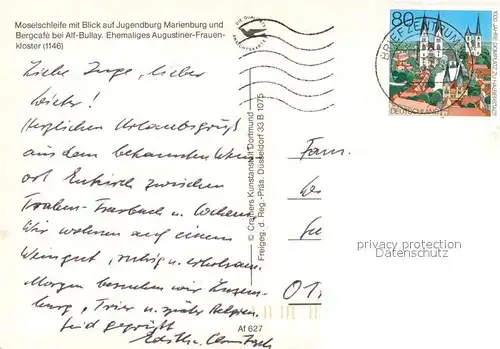 Moselschleife mit Blick auf Jugendburg Marienburg und
Bergcafé bei Alf-Bullay. Ehemaliges Augustiner-Frauen-
kloster (1146)
Liebe Inge, lieber
Dieter!
Herzlichen Urlaubsgruß
aus dem bekannten Wein-
ort Enkirch zwischen
Traben-Trarbach u. Cochem.
Wir wohnen auf einem
Weingut, ruhig u. erholsam.
Morgen besuchen wir Luxem-
burg, Trier u. später Belgien.
Seid gegrüßt
Af 627
© Cramers Kunstanstalt Dortmund
Freigeg. d. Reg.-Präs. Düsseldorf 33 B 1075
DIE QUALITÄTS
ANSICHTSKARTE
BRIEFZENTRUM
80
DEUTSCHLAND
1005 JAHRE DOMPLATZ ZU HALBERSTADT
Fam.
privacy protection
Datenschutz